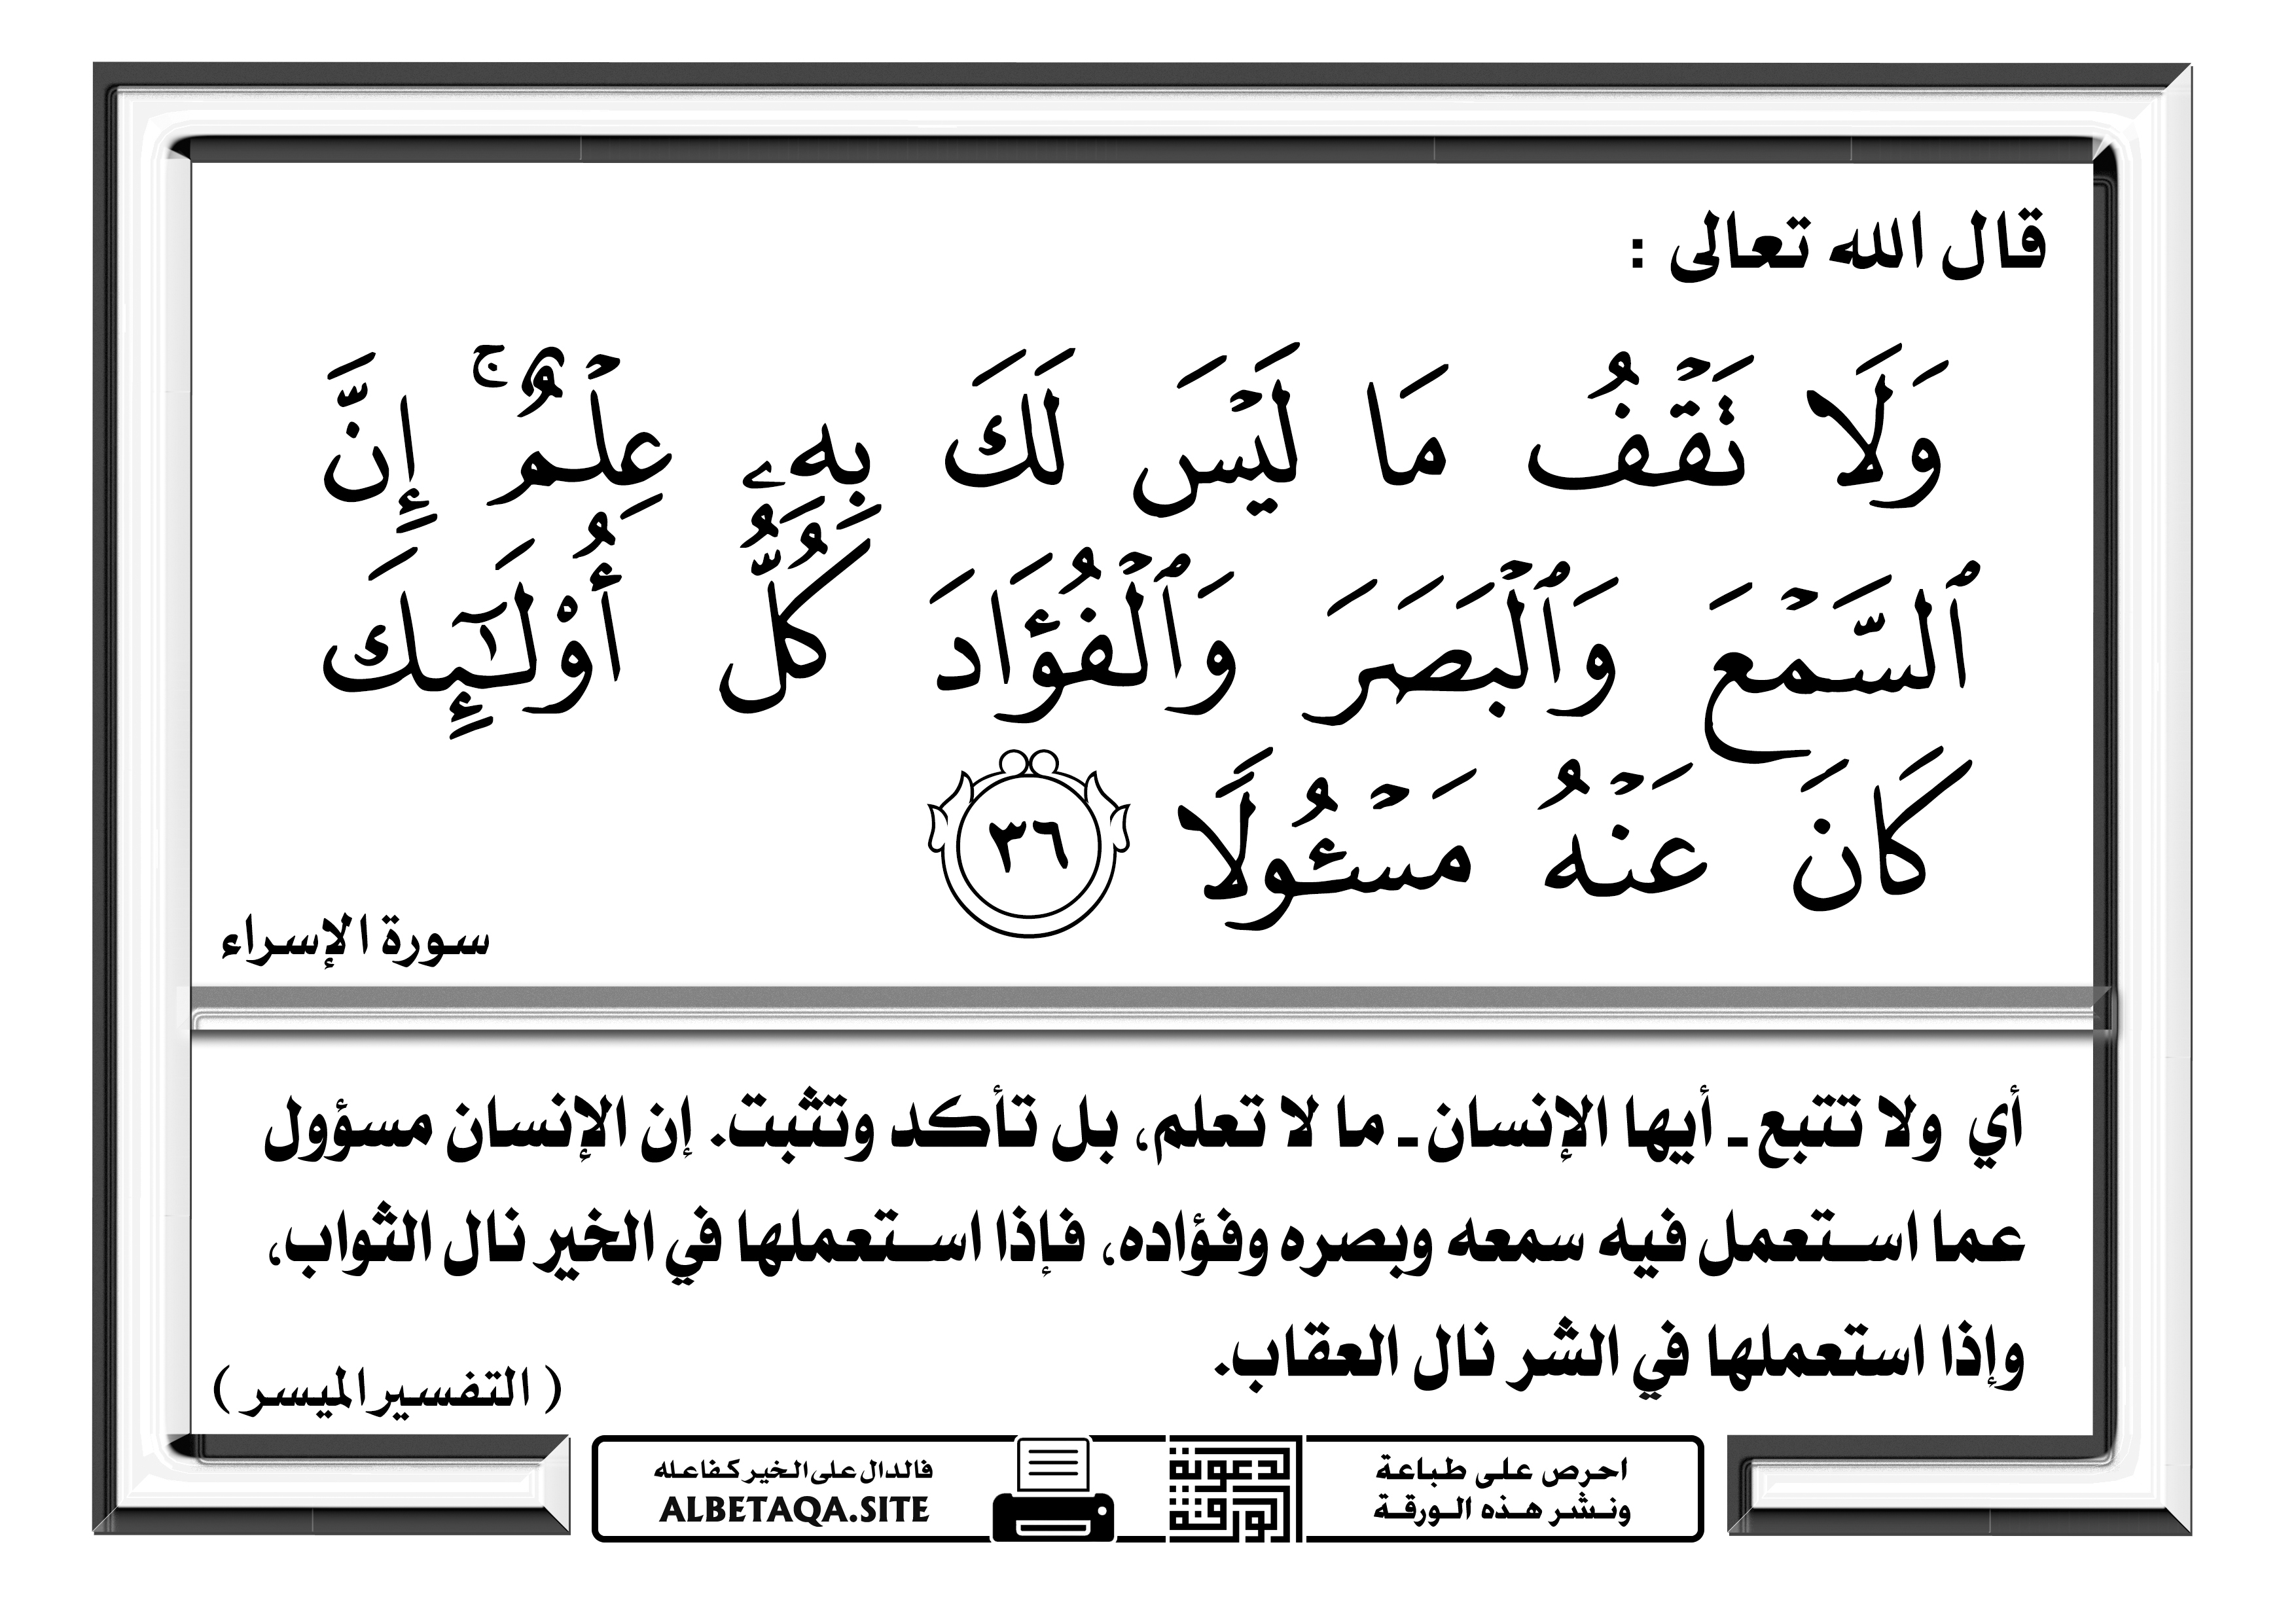 قال الله تعالى :
وَلَا تَقْفُ مَا لَيْسَ لَكَ بِهِۦ عِلْمٌ ۚ إِنَّ
ٱلسَّمْعَ وَٱلْبَصَرَ وَٱلْفُؤَادَ كُلُّ أُوْلَـٰٓئِكَ
كَانَ عَنْهُ مَسْـُٔولًا ٣٦
سورة الإسراء
أي ولا تتبع - أيها الإنسان - ما لا تعلم، بل تأكد وتثبت. إن الإنسان مسؤول
عما استعمل فيه سمعه وبصره وفؤاده، فإذا استعملها في الخير نال الثواب،
وإذا استعملها في الشر نال العقاب.
( التفسير الميسر )
احرص على طباعة
ونشر هذه الورقة
الدعوية
الورقة
فالدال على الخير كفاعله
ALBETAQA.SITE